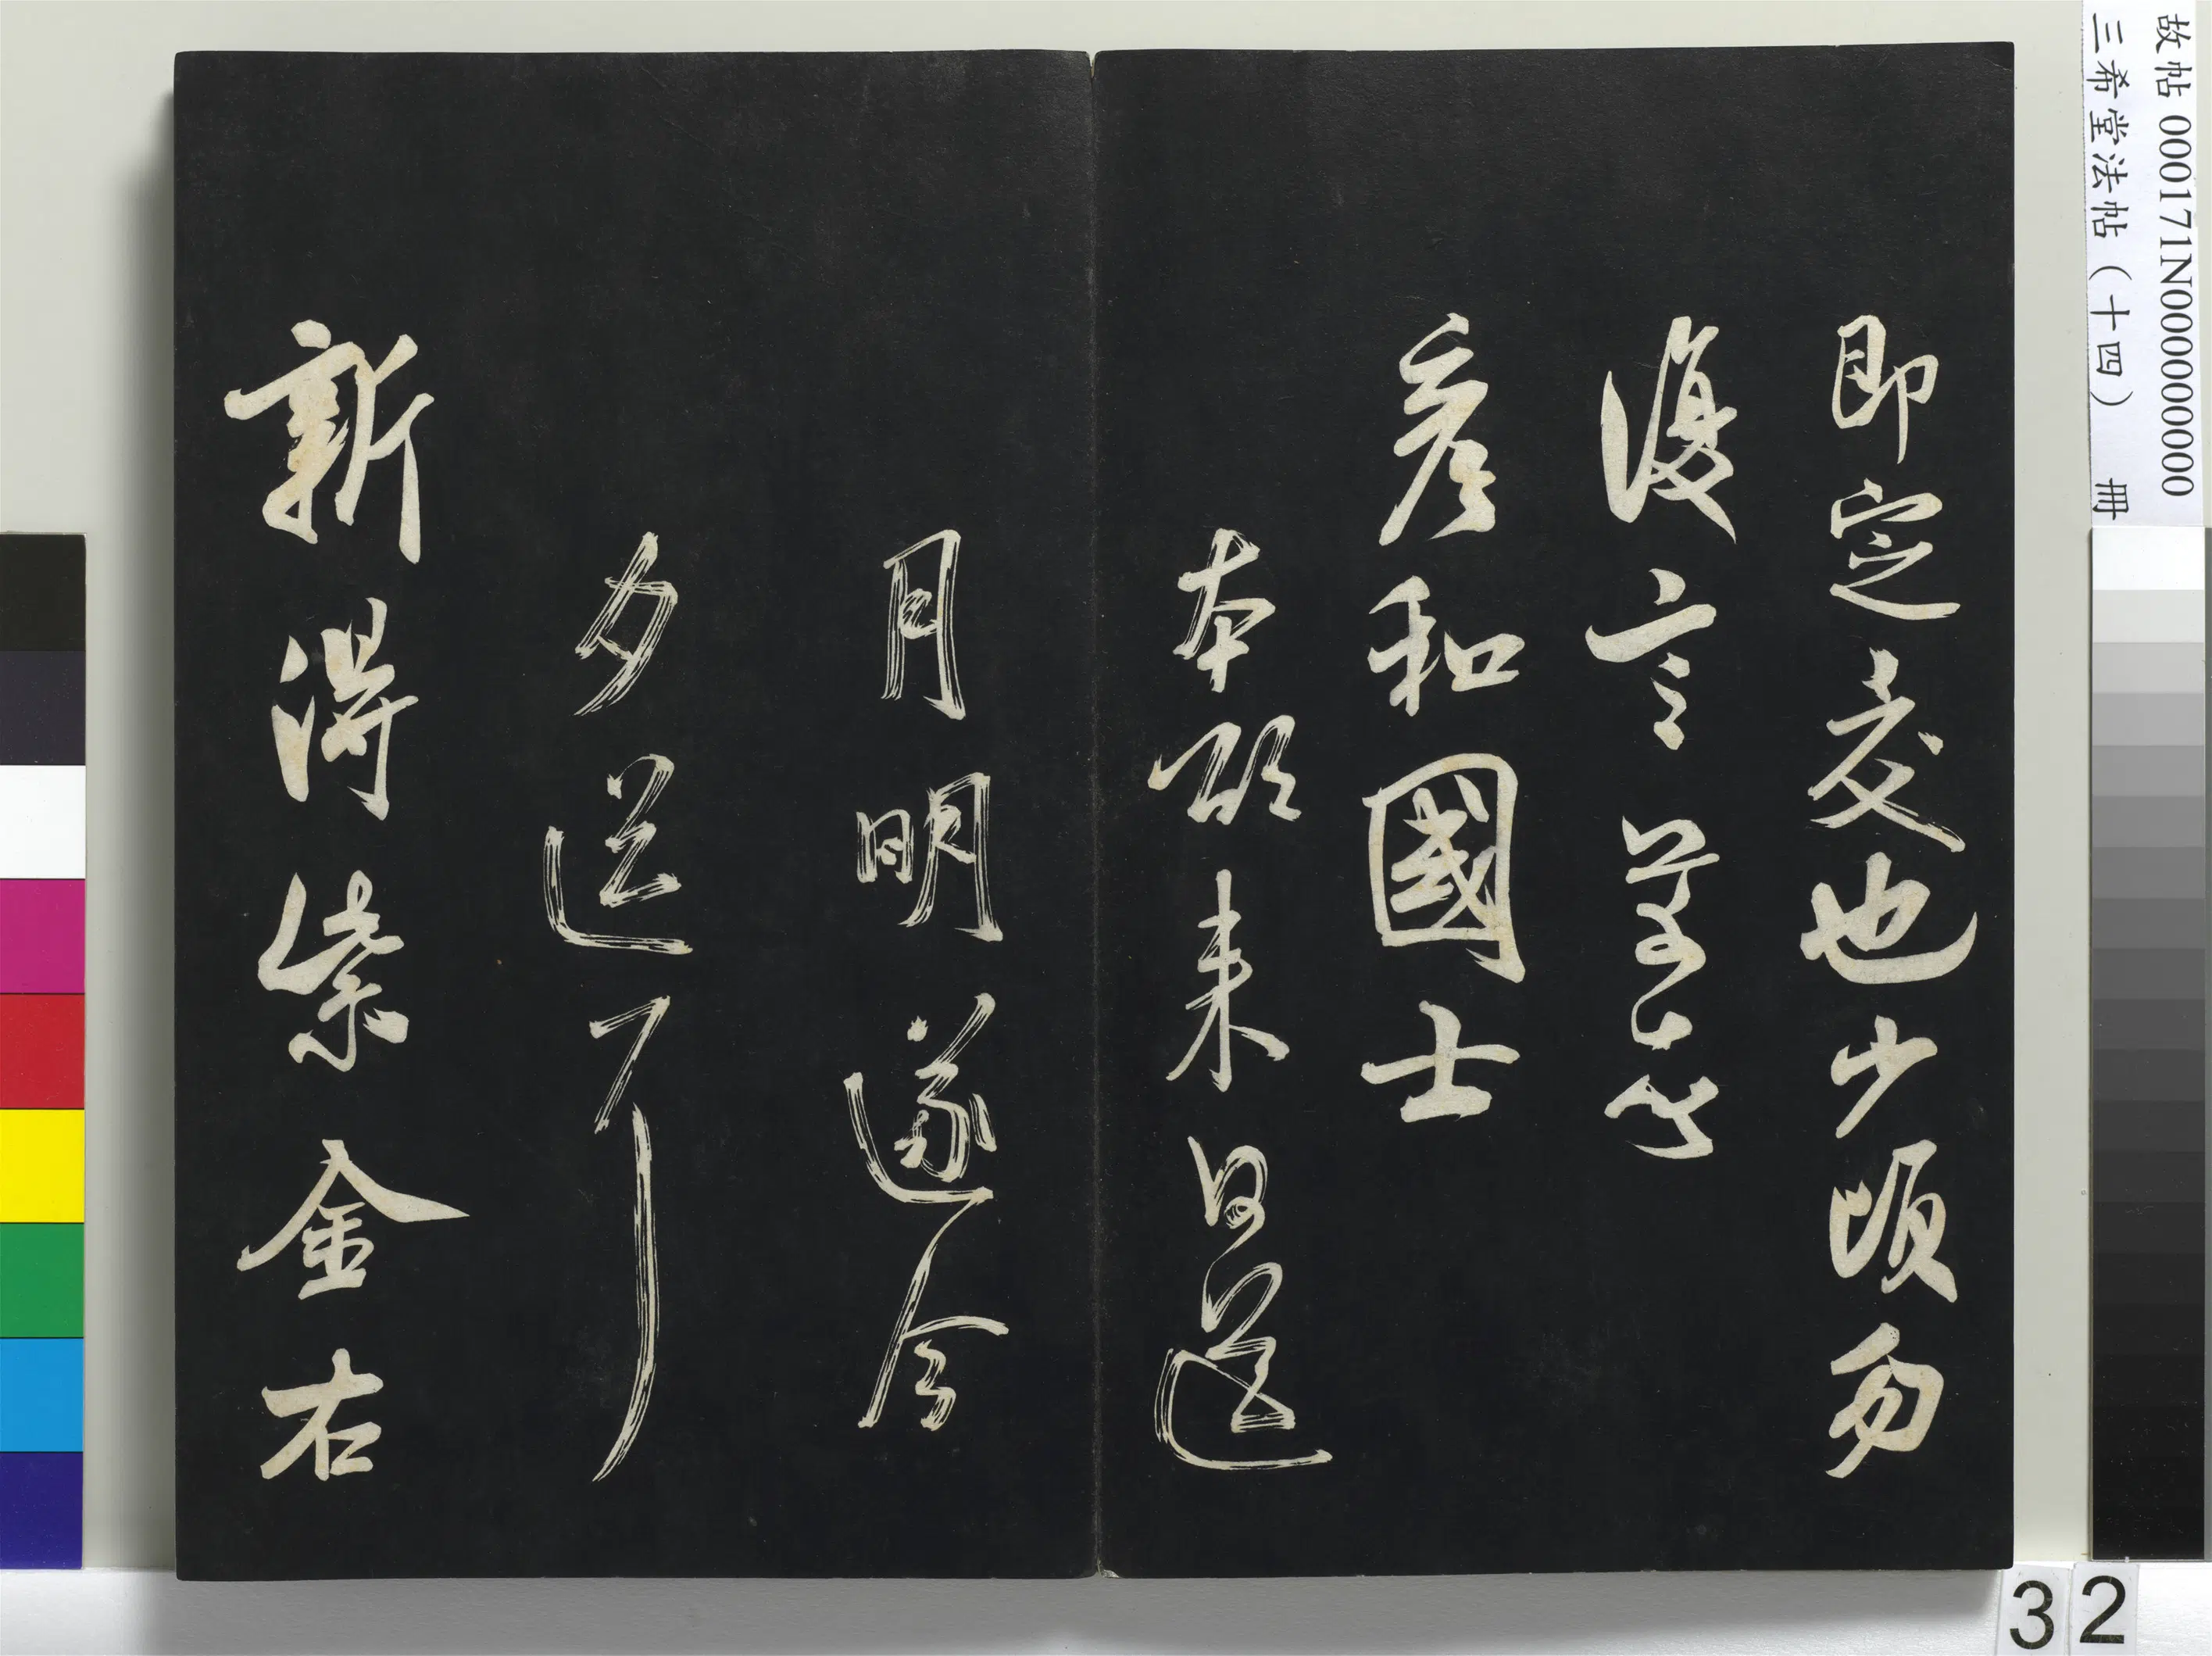 即定交也少頃勿
復言芾
彥和國士
本欲來日送
月明遂今
夕送耳
新得紫金右
故帖 000171N000000000
三希堂法帖（十四） 冊
32